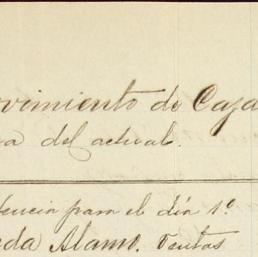 ovimiento de Caja
a del actual.
tencia para el día 1º
da Alamo. Ventas